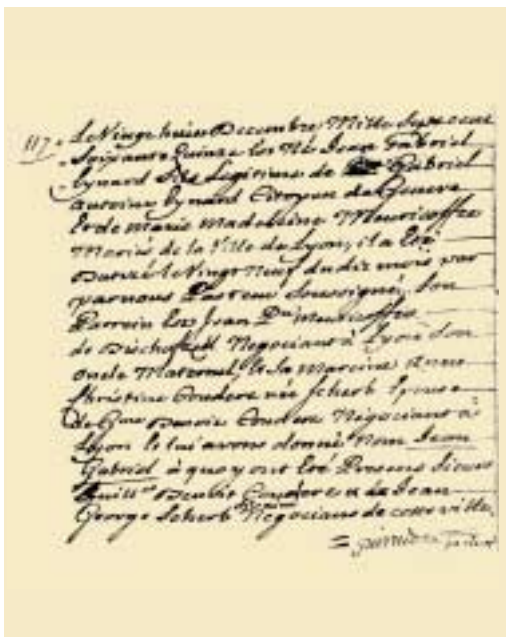 117. Le Vingt huit Decembre Mille Sept cent
Soixante Quinze est Né Jean Gabriel
Eynard fils Legitime de Gabriel
Antoine Eynard Citoyen de Geneve
Et de Marie Madeleine Meuricoffre
Mariés de la Ville de Lyon, il a Eté
Batizé le Vingt Neuf du dit mois par
par nous Pasteur Soussigné, Son
Parrein Est Jean Meuricoffre
de Bischofzell Negociant à Lyon Son
oncle Maternel, Et Sa Mareine Anne
Christine Couderc née Scherb Epouse
de Couderc Négociant à
Lyon Et lui avons donné Nom Jean
Gabriel à quoy ont Eté Presens
Couderc & de Jean
George Scherb Negocians de cette ville.